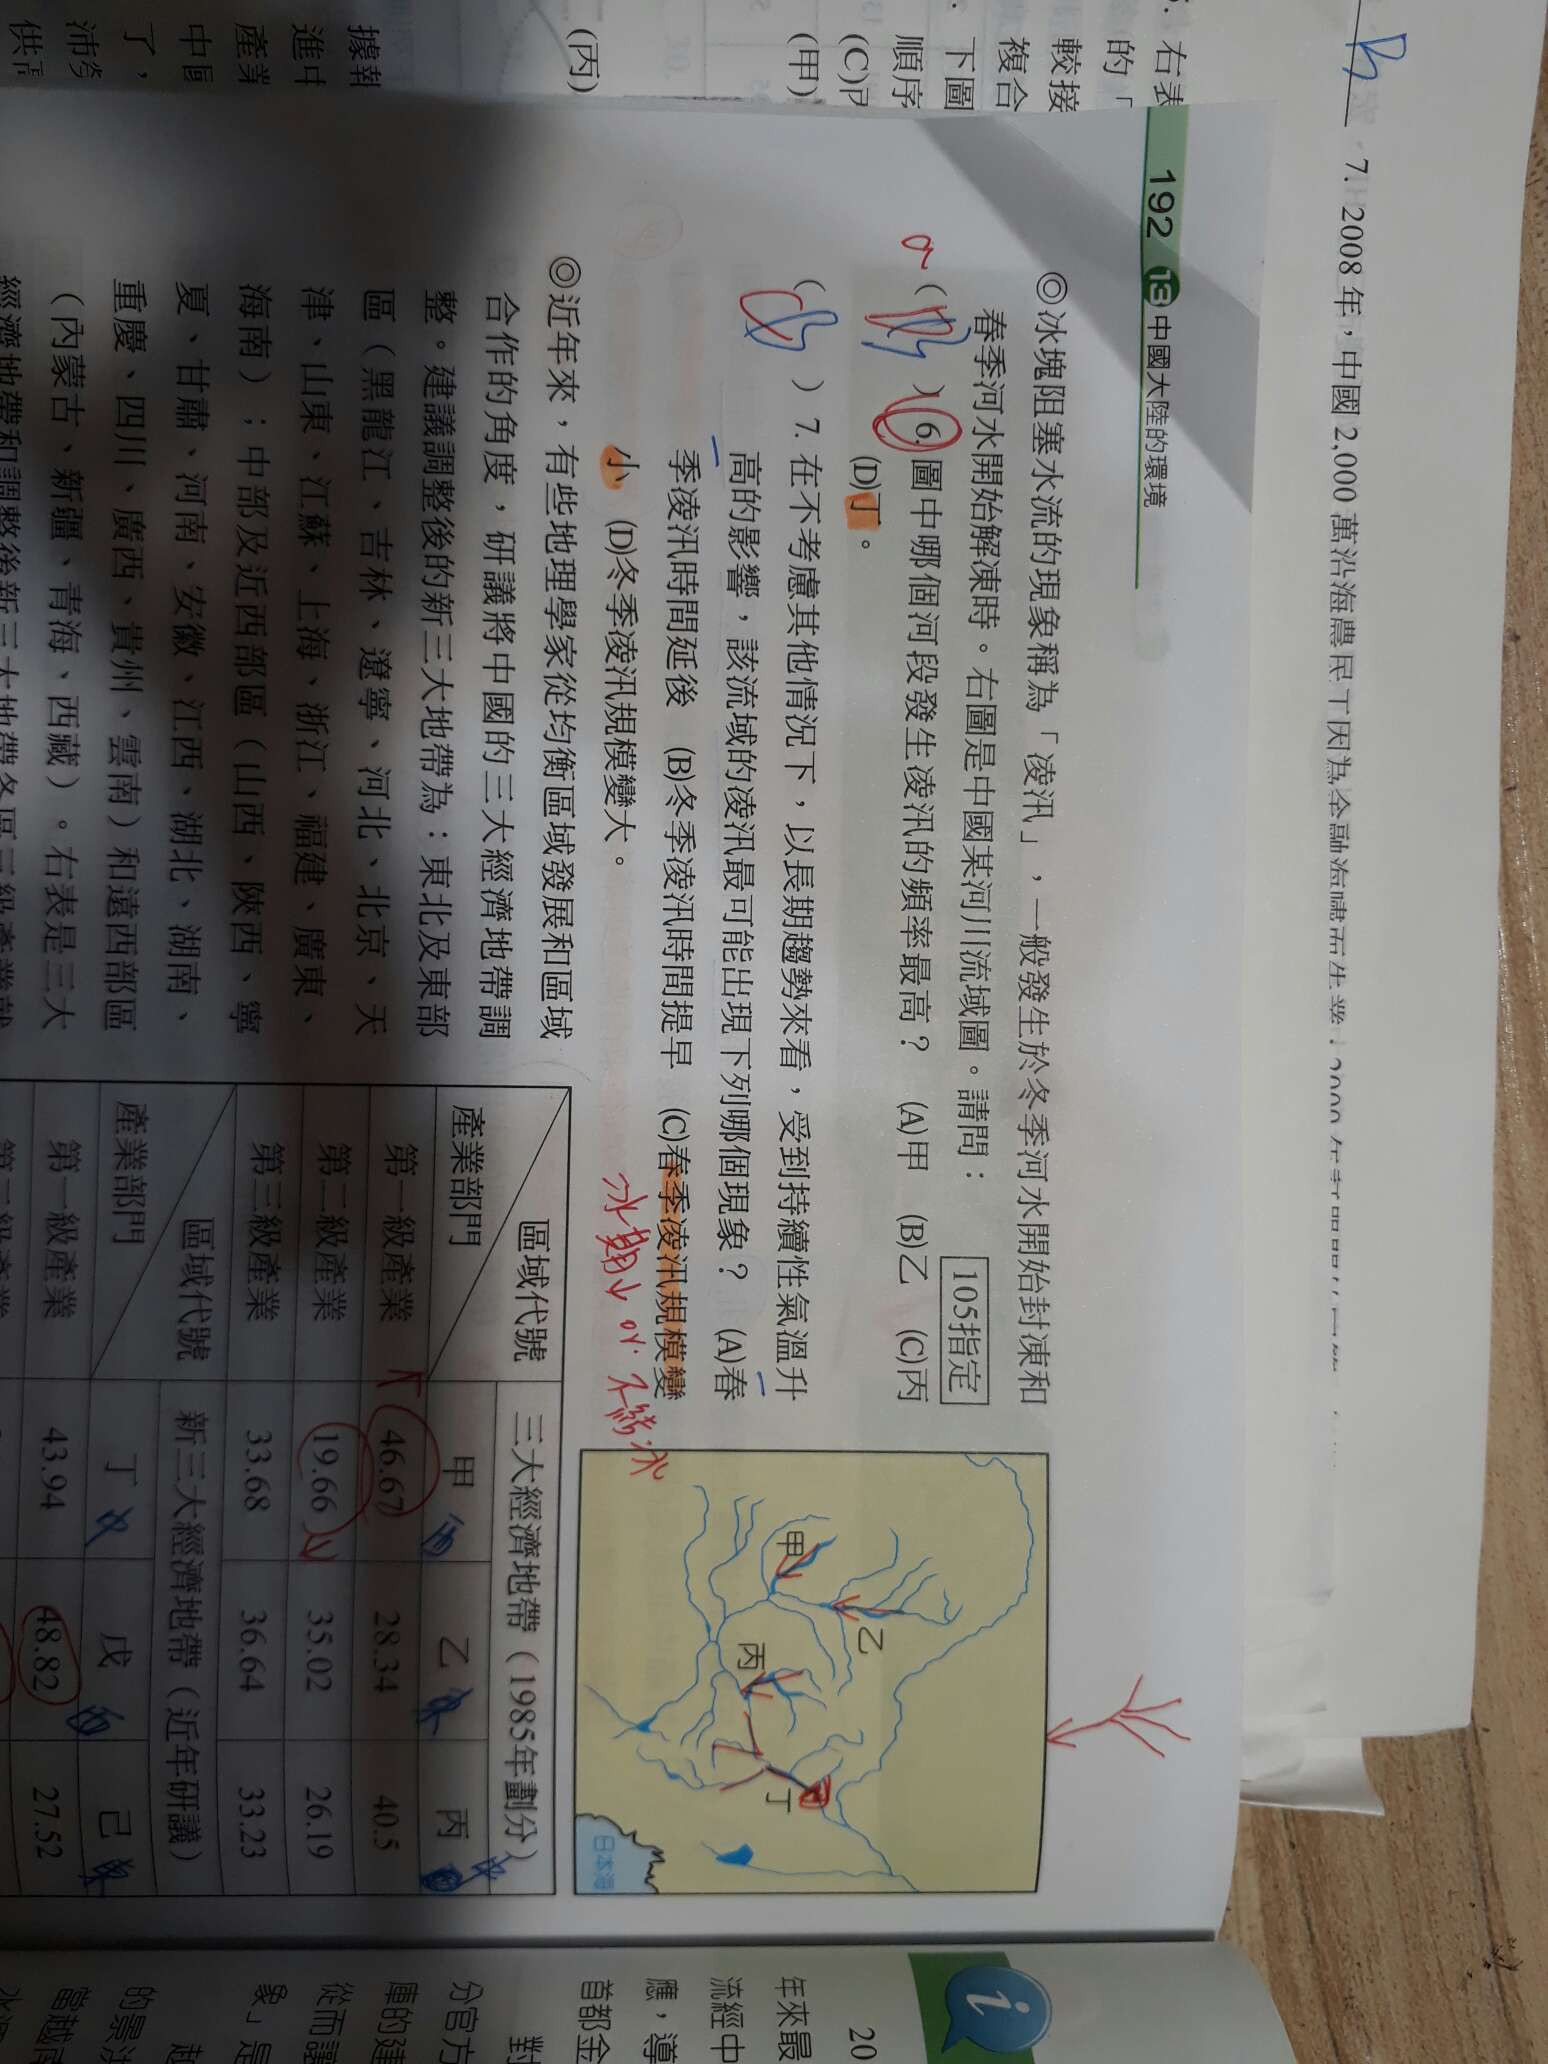 7. 2008 年，中國 2,000 萬沿海農民工因為金融海嘯而失業
5. 右表
的「
較接
複合
下圖
順序
(C)丙
(甲)
(丙)
據報
進中
產業
中國
了，
沛勞
192 13 中國大陸的環境
◎冰塊阻塞水流的現象稱為「凌汛」，一般發生於冬季河水開始封凍和
春季河水開始解凍時。右圖是中國某河川流域圖。請問： 105指定
( ) 6. 圖中哪個河段發生凌汛的頻率最高？ (A)甲 (B)乙 (C)丙
(D)丁。
( ) 7. 在不考慮其他情況下，以長期趨勢來看，受到持續性氣溫升
高的影響，該流域的凌汛最可能出現下列哪個現象？ (A)春
季凌汛時間延後 (B)冬季凌汛時間提早 (C)春季凌汛規模變
小 (D)冬季凌汛規模變大。
冰期↓ or 不結冰
甲
乙
丙
丁
日本海
◎近年來，有些地理學家從均衡區域發展和區域
合作的角度，研議將中國的三大經濟地帶調
整。建議調整後的新三大地帶為：東北及東部
區（黑龍江、吉林、遼寧、河北、北京、天
津、山東、江蘇、上海、浙江、福建、廣東、
海南）；中部及近西部區（山西、陝西、寧
夏、甘肅、河南、安徽、江西、湖北、湖南、
重慶、四川、廣西、貴州、雲南）和遠西部區
（內蒙古、新疆、青海、西藏）。右表是三大
經濟地帶和調整後新三大地帶各區三級產業就
區域代號 三大經濟地帶（1985年劃分）
產業部門 甲 乙 丙
第一級產業 46.67 28.34 40.5
第二級產業 19.66 35.02 26.19
第三級產業 33.68 36.64 33.23
區域代號 新三大經濟地帶（近年研議）
產業部門 丁 戊 己
第一級產業 43.94 48.82 27.52
第二級產業
i
20
年來最
流經中
應，導
首都金
對
分官方
庫的建
從而讓
象」是
越
的景況
當越南